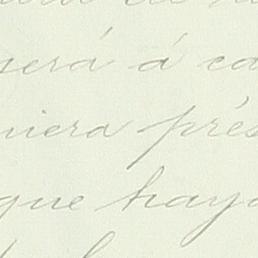 será á ca
niera prés
que haya